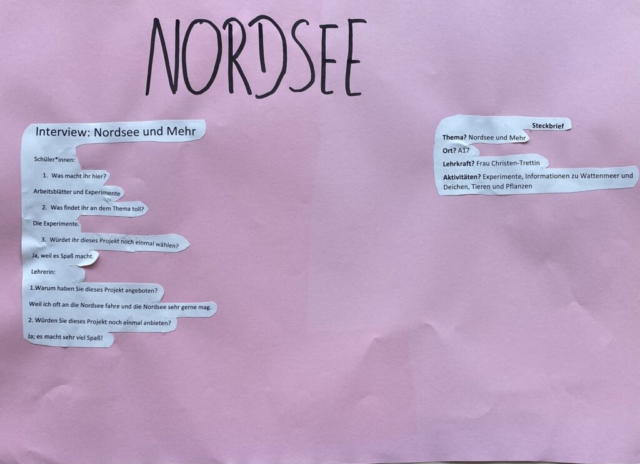 NORDSEE
Interview: Nordsee und Mehr
Schüler*innen:
1. Was macht ihr hier?
Arbeitsblätter und Experimente
2. Was findet ihr an dem Thema toll?
Die Experimente.
3. Würdet ihr dieses Projekt noch einmal wählen?
Ja, weil es Spaß macht.
Lehrerin:
1.Warum haben Sie dieses Projekt angeboten?
Weil ich oft an die Nordsee fahre und die Nordsee sehr gerne mag.
2. Würden Sie dieses Projekt noch einmal anbieten?
Ja; es macht sehr viel Spaß!
Steckbrief
Thema? Nordsee und Mehr
Ort? A17
Lehrkraft? Frau Christen-Trettin
Aktivitäten? Experimente, Informationen zu Wattenmeer und
Deichen, Tieren und Pflanzen